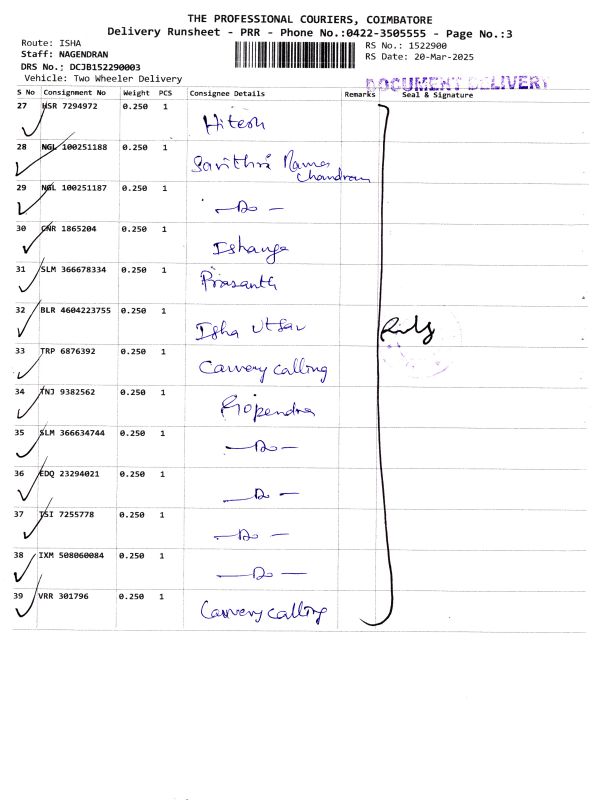 THE PROFESSIONAL COURIERS, COIMBATORE
Delivery Runsheet - PRR - Phone No.:0422-3505555 - Page No.:3
Route: ISHA
Staff: NAGENDRAN
DRS No.: DCJB152290003
Vehicle: Two Wheeler Delivery
RS No.: 1522900
RS Date: 20-Mar-2025
DOCUMENT DELIVERY
S No Consignment No Weight PCS Consignee Details Remarks Seal & Signature
27 HSR 7294972 0.250 1 Hitesh
28 NGL 100251188 0.250 1 Savithri Rama Chandran
29 NGL 100251187 0.250 1 —Do—
30 CNR 1865204 0.250 1 Ishange
31 SLM 366678334 0.250 1 Prasanth
32 BLR 4604223755 0.250 1 Isha Utsav
33 TRP 6876392 0.250 1 Cauvery calling
34 TNJ 9382562 0.250 1 Gopendra
35 SLM 366634744 0.250 1 —Do—
36 EDQ 23294021 0.250 1 —Do—
37 TSI 7255778 0.250 1 —Do—
38 IXM 508060084 0.250 1 —Do—
39 VRR 301796 0.250 1 Cauvery calling